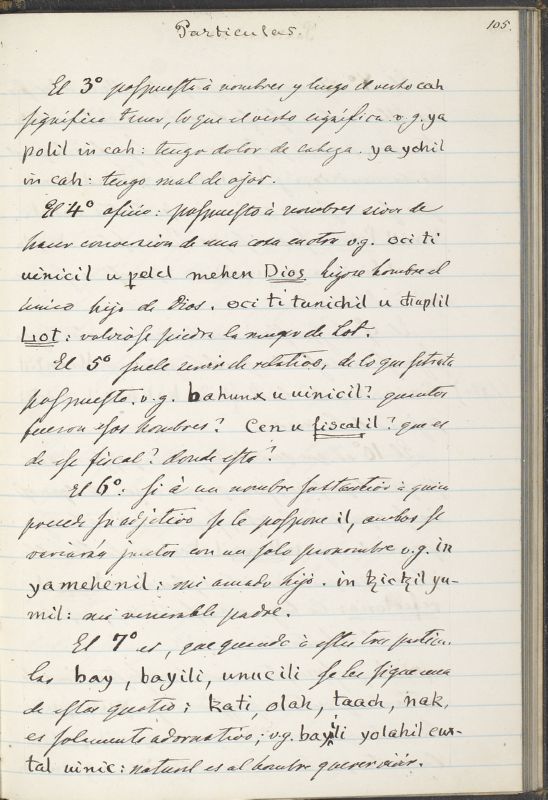 Particulas.
105.
El 3º pospuesto à nombres y luego el verbo cah
significa tener, lo que el verbo significa. v.g. ya
polil in cah: tengo dolor de cabeza. ya ychil
in cah: tengo mal de ojos.
El 4º oficio: pospuesto à nombres sirve de
hacer conversion de una cosa en otra v.g. oci ti
uinicil u pelel mehen Dios hizose hombre el
unico hijo de Dios. oci ti tunichil u
Lot: volviose piedra la muger de Lot.
El 5º suele servir de relativo, de lo que se trata
pospuesto. v.g. bahunx u uinicil? quantos
fueron esos hombres? Cen u fiscalil? que es
de ese fiscal? donde esta?
El 6º: si à un nombre sustantivo à quien
precede su adjetivo se le pospone il, ambos se
variarán juntos con un solo pronombre v.g. in
yamehenil: mi amado hijo. in yu-
mil: mi venerable padre.
El 7º es, que quando à estas tres particu-
las bay, bayili, unucili se les sigue una
de estas quatro; kati, olah, taach, nak,
es solamente adornativo; v.g. bayili yolahil cux-
tal uinic: natural es al hombre querer vivir.